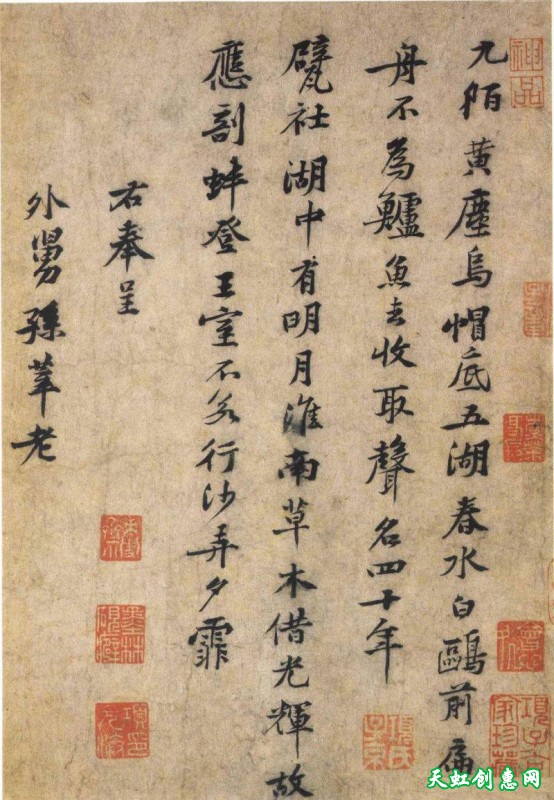 神品
九陌黃塵烏帽底五湖春水白鷗前扁
舟不為鱸魚去收取聲名四十年
甓社湖中有明月淮南草木借光輝故
應剖蚌登王室不若行沙弄夕霏
右奉呈
外舅孫莘老
項子京家珍藏
項氏子京
天虹创意网